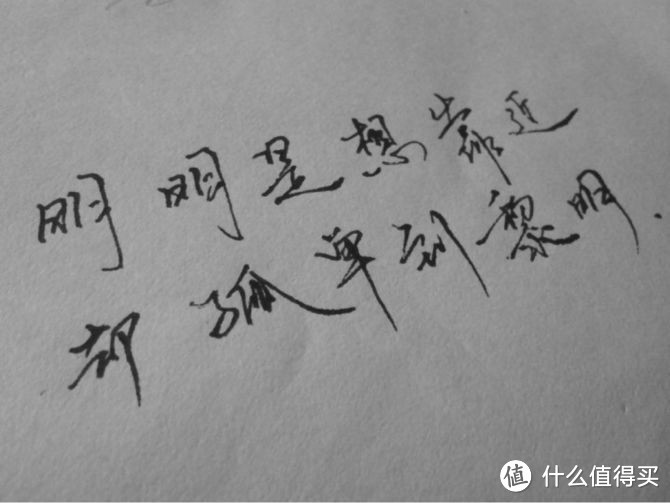 明明是想靠近
却孤单到黎明.
值 什么值得买